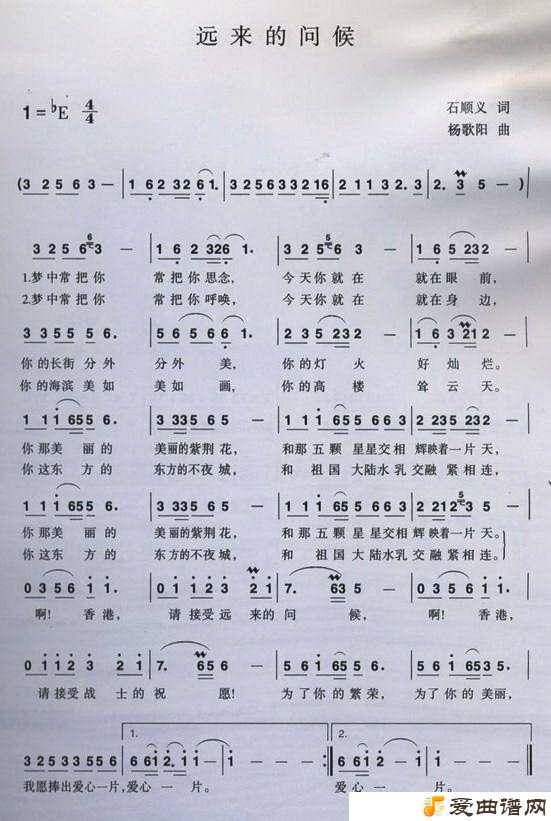 远来的问候
1=♭E 4/4
石顺义 词
杨歌阳 曲
(3 2 5 6 3 — | 1 6 2 3 2 6 1. | 3 2 5 6 3 2 3 2 1 6 | 2 1 1 3 2. 3 | 2. 3 5 — )
3 2 5 6 3 — | 1 6 2 3 2 6 1. | 3 2 5 6 5 — | 1 6 2 3 2 2 —
1.梦中常把你 常把你思念, 今天你就在 就在眼前,
2.梦中常把你 常把你呼唤, 今天你就在 就在身边,
3 3 5 5 5 6. | 5 6 5 6 6. | 3 2 3 5 2 3 2 | 1 6 3 2 1 2.
你的长街分外 分外美, 你的灯火 好灿烂。
你的海滨美如 美如画, 你的高楼 耸云天。
1 1 1 6 5 5 | 3 3 3 5 6 5 — | 1 1 6 5 5 6 6 5 | 2 2 3 5 2 3 —
你那美丽的 美丽的紫荆花, 和那五颗星星交相 辉映着一片天,
你这东方的 东方的不夜城, 和祖国大陆水乳 交融紧相连,
1 1 1 6 5 5 | 3 3 3 5 6 5 — | 1 1 6 5 5 6 6 5 | 2 2 2 1 2 2 —
你那美丽的 美丽的紫荆花, 和那五颗星星交相 辉映着一片天。
你这东方的 东方的不夜城, 和祖国大陆水乳 交融紧相连。
0 3 5 6 1 — | 0 1 2 3 2 1 | 7. 6 3 5 | 0 3 5 6 1 —
啊! 香港, 请接受远来的问候, 啊! 香港,
0 1 2 3 2 1 | 7. 6 5 6 — | 5 6 1 6 5 5 | 5 6 1 6 3 5 5
请接受战士的祝愿! 为了你的繁荣, 为了你的美丽,
3 2 5 3 3 5 5 6 | 1. 6 6 1 2 . 2 1 | 1 — — — :| 2. 6 6 1 2 | 1 — — —
我愿捧出爱心一片, 爱心一片。 爱心一片。
爱曲谱网